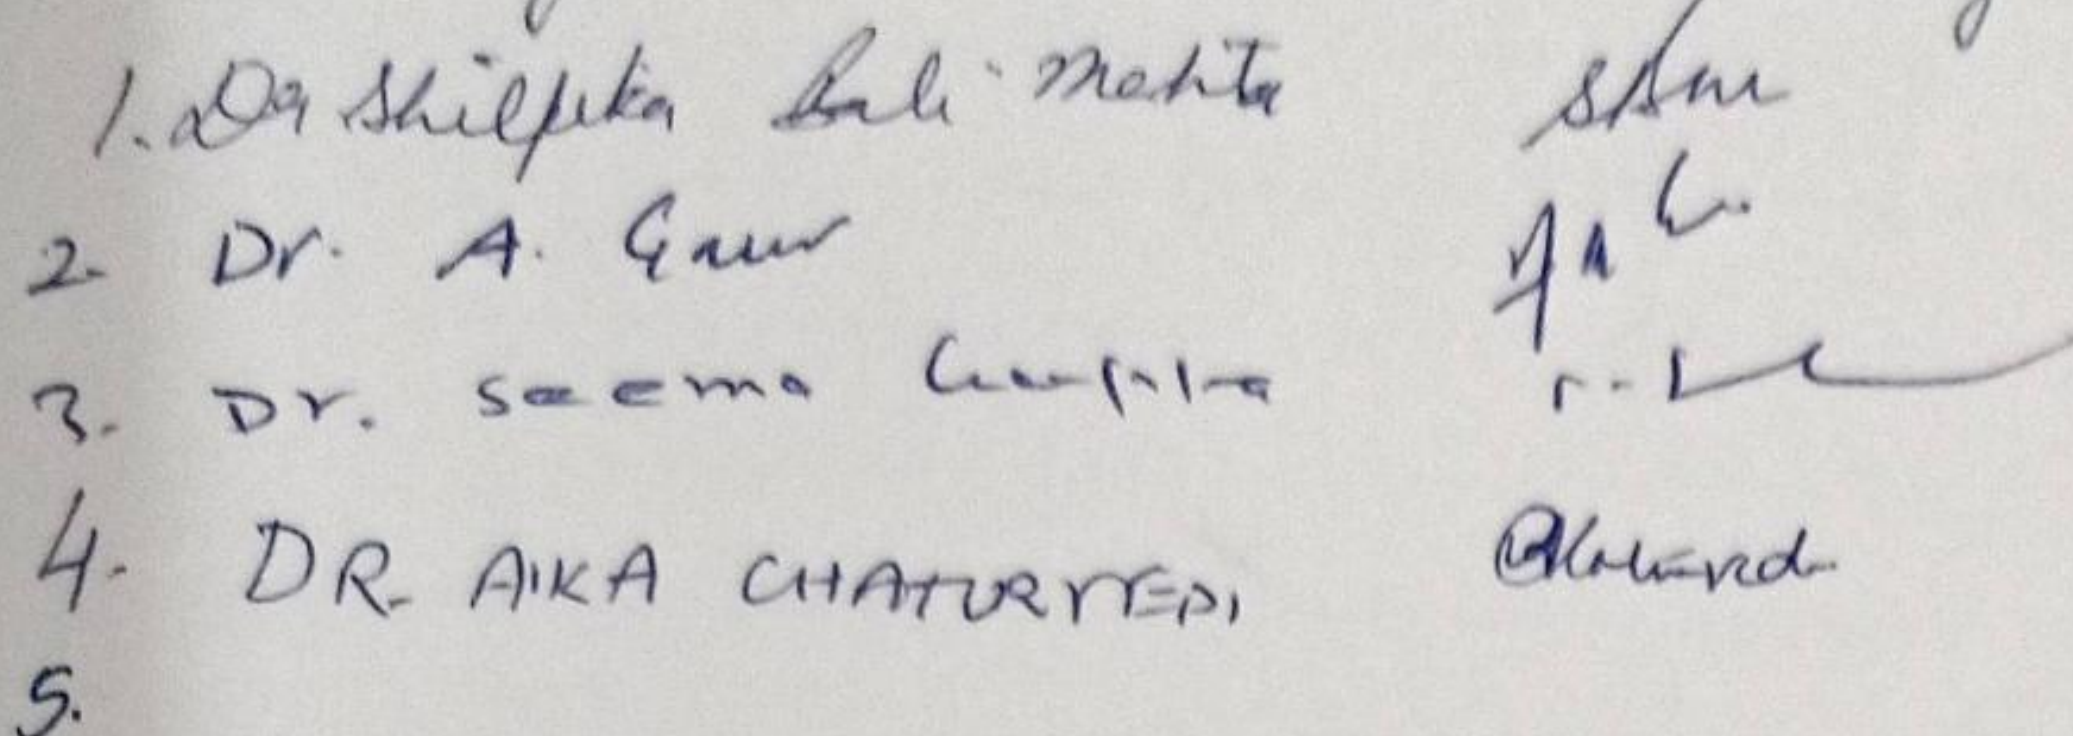 1. Dr Shilpika Bali Mehta
2. Dr. A. Gaur
3. Dr. Seema Gupta
4. DR. AIKA CHATURVEDI
5.